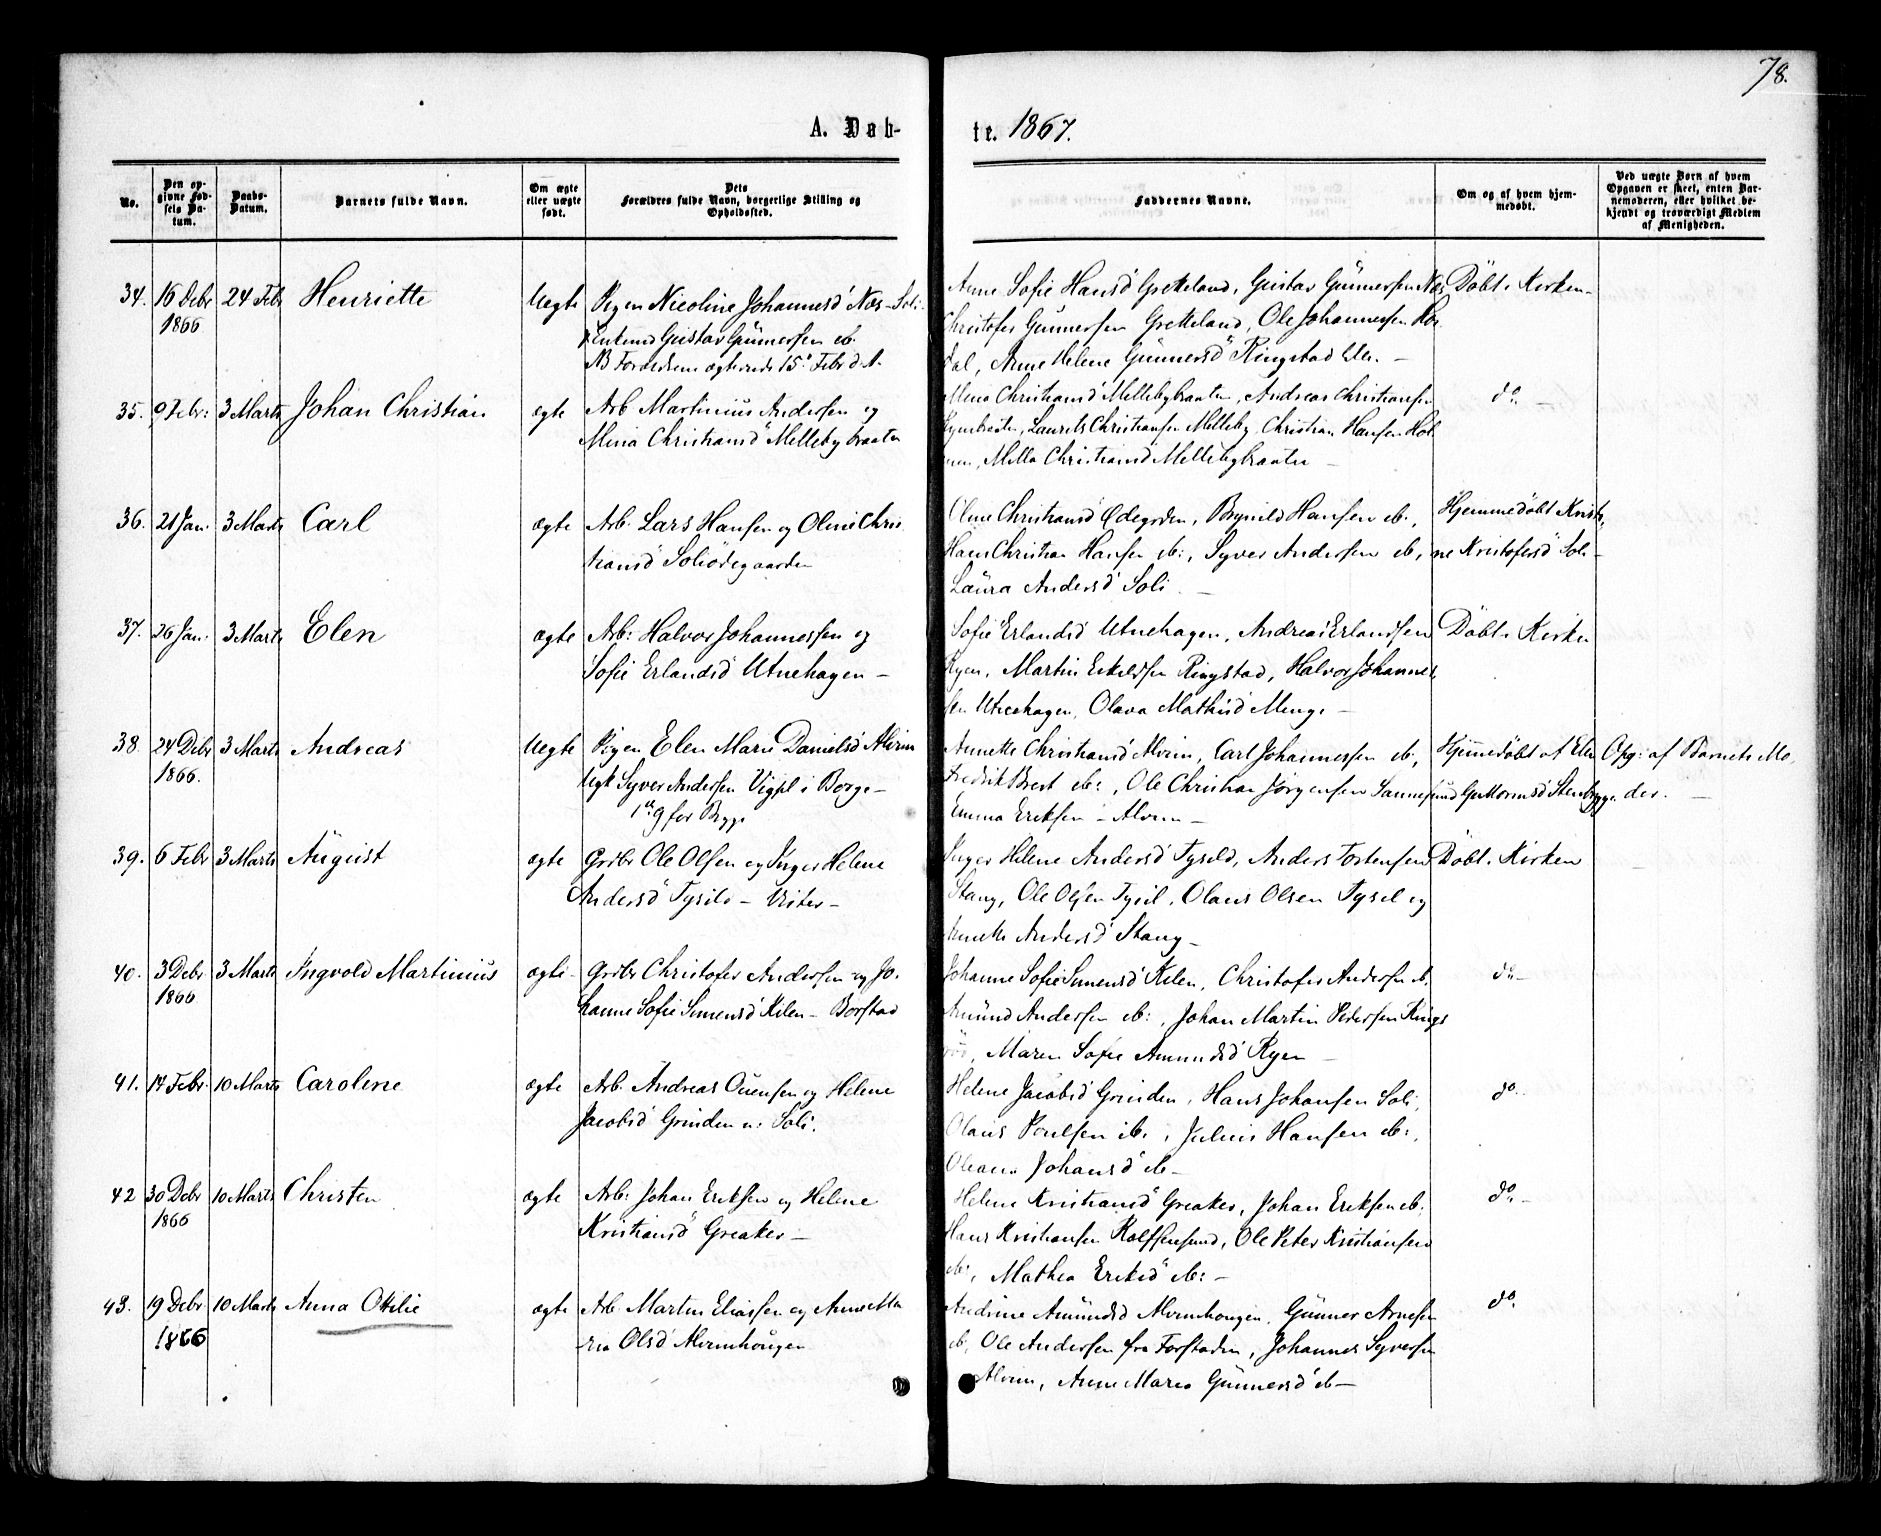 78.
A. Døb-
te. 1867.
No.
Den op-
givne Fød-
sels Da-
tum.
Daabs-
Datum.
Barnets fulde Navn.
Om ægte
eller uægte
født.
Dets
Forældres fulde Navn, borgerlige Stilling og
Opholdssted.
Faddernes Navne.
Om og af hvem hjem-
medøbt.
Ved uægte Børn af hvem
Opgaven er skeet, enten Bar-
nemoderen, eller hvilket be-
kjendt og troværdigt Medlem
af Menigheden.
34. 16 Debr 24 Feb Henriette Uegte Pigen Nicoline Johannesd Næs - Soli
1866
Enkemd Gustav Gunnersen eb.
NB Forældrene ægteviede 15. Febr d. A.
Anne Sofie Hansd Gretteland, Gustav Gunnersen Næs Döbt i Kirken
Christofer Gunnersen Gretteland, Ole Johannesen
dal, Anne Helene Gunnersd Ringstad
35. 9 Febr: 3 Marts Johan Christian ægte Arb Martinius Andersen og
Mina Christiansd Mellebybraaten
Mina Christiansd Mellebybraaten, Andreas Christiansen do
Laurits Christiansen Melleby Christian Hansen Hol
Milla Christiansd Mellebybraaten
36. 21 Jan. 3 Marts Carl ægte Arb. Lars Hansen og Oline Chris
tiansd Soliødegaarden
Oline Christiansd Ødegrden, Brynild Hansen eb., Hjemmedöbt Kristi,
Hans Christian Hansen eb:, Syver Andersen eb, ne Kristofersd Soli -
Laura Andersd Soli -
37. 26 Jan: 3 Marts Elen ægte Arb: Halvor Johannessen og
Sofie Erlandsd Utnehagen -
Sofie Erlandsd Utnehagen, Andreas Erlandsen Döbt i Kirken
Ryen, Martin Eskildsen Ringstad, Halvor Johannes
sen Utnehagen, Olava Mathisd Menge -
38. 24 Debr 3 Marts Andreas Uegte Pigen Elen Marie Danielsd Alvim
1866.
Ugk Syver Andersen i Borge -
1ste g for Begge
Annette Christiansd Alvim, Carl Johannessen eb, Hjemmedöbt af Elen Opg: af Barnets Mo,
Fredrik Brest eb:, Ole Christian Jörgensen Sannesund Guttormsd Stenbrygge. der. -
Emma Eriksen - Alvim -
39. 6 Febr 3 Marts August ægte Grdbr Ole Olsen og Inger Helene
Andersd Tysild - Vister -
Inger Helene Andersd Tysild, Anders Tostensen Döbt i Kirken
Stang, Ole Olsen Tysil, Olaus Olsen Tysil og
Annette Andersd Stang -
40. 3 Debr 3 Marts Ingvold Martinius ægte Grdbr Christofer Andersen og Jo,
1866
hanne Sofie Simensd Kilen - Borstad
Johanne Sofie Simensd Kilen, Christofer Andersen eb. do -
Amund Andersen eb:, Johan Martin Pedersen Rings
rös, Maren Sofie Amundsd Ryen -
41. 14 Febr. 10 Marts Caroline ægte Arb. Andreas Ouensen og Helene
Jacobsd Grinden u: Soli.
Helene Jacobsd Grinden, Hans Johansen Soli, do
Olaus Poulsen eb., Julius Hansen eb:,
Oleana Johansd eb -
42 30 Debr 10 Marts Christen ægte Arb: Johan Eriksen og Helene
1866
Kristiansd Greaker -
Helene Kristiansd Greaker, Johan Eriksen eb. do -
Hans Kristiansen Rolfsensund, Ole Peter Kristiansen
eb:, Mathea Eriksd eb: -
43. 19 Debr 10 Marts Anna Otilie ægte Arb Martin Eliassen og Anne Ma
1866
ria Olsd Alvimhougen
Andrine Amundsd Alvimhougen, Gunner Arnesen do.
eb, Ole Andersen fra Forstaden, Johannes Syversen
Alvim, Anne Marie Gunnersd eb -